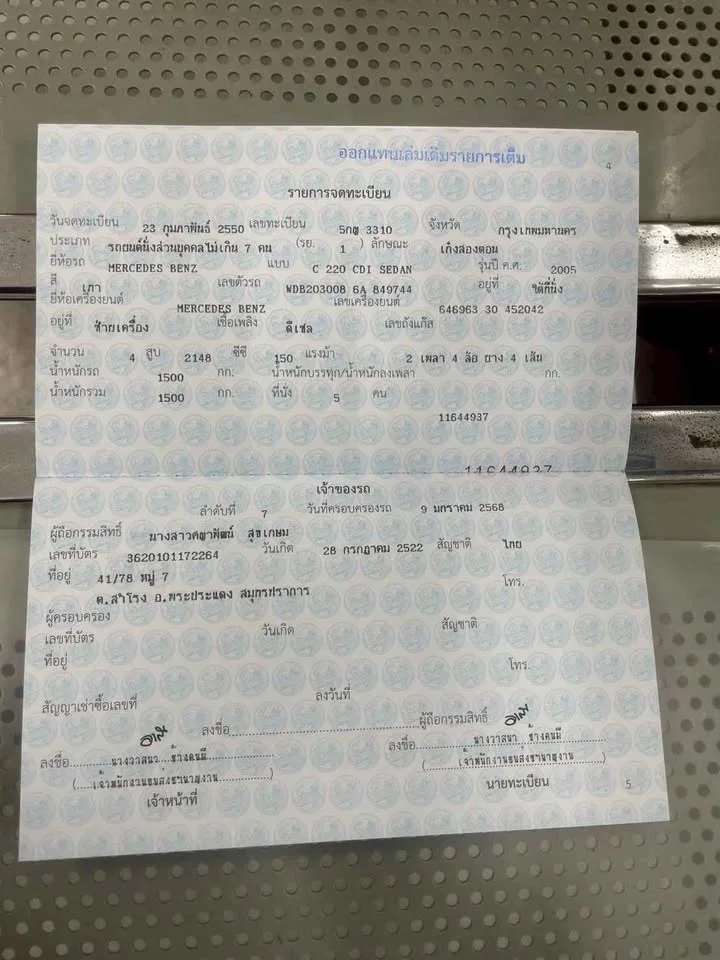 ออกแทนเล่มเดิมรายการเต็ม
4
รายการจดทะเบียน
วันจดทะเบียน 23 กุมภาพันธ์ 2550 เลขทะเบียน 3310 จังหวัด กรุงเทพมหานคร
ประเภท รถยนต์นั่งส่วนบุคคลไม่เกิน 7 คน (รย. 1 ) ลักษณะ เก๋งสองตอน
ยี่ห้อรถ MERCEDES BENZ แบบ C 220 CDI SEDAN รุ่นปี ค.ศ. 2005
สี เทา เลขตัวรถ WDB203008 6A 849744 อยู่ที่ ใต้ที่นั่ง
ยี่ห้อเครื่องยนต์ MERCEDES BENZ เลขเครื่องยนต์ 646963 30 452042
อยู่ที่ ซ้ายเครื่อง เชื้อเพลิง ดีเซล เลขถังแก๊ส
จำนวน 4 สูบ 2148 ซีซี 150 แรงม้า 2 เพลา 4 ล้อ ยาง 4 เส้น
น้ำหนักรถ 1500 กก. น้ำหนักบรรทุก/น้ำหนักลงเพลา กก.
น้ำหนักรวม 1500 กก. ที่นั่ง 5 คน
11644937
11644937
เจ้าของรถ
ลำดับที่ 7 วันที่ครอบครองรถ 9 มกราคม 2568
ผู้ถือกรรมสิทธิ์ นางสาว สุขเกษม
เลขที่บัตร 3620101172264 วันเกิด 28 กรกฎาคม 2522 สัญชาติ ไทย
ที่อยู่ 41/78 หมู่ 7 โทร.
ต.สำโรง อ.พระประแดง สมุทรปราการ
ผู้ครอบครอง
เลขที่บัตร วันเกิด สัญชาติ
ที่อยู่ โทร.
สัญญาเช่าซื้อเลขที่ ลงวันที่
ลงชื่อ ผู้ถือกรรมสิทธิ์
ลงชื่อ นางวาสนา ช้างคนมี ลงชื่อ นางวาสนา ช้างคนมี
(เจ้าพนักงานขนส่งชำนาญงาน) (เจ้าพนักงานขนส่งชำนาญงาน)
เจ้าหน้าที่ นายทะเบียน
5